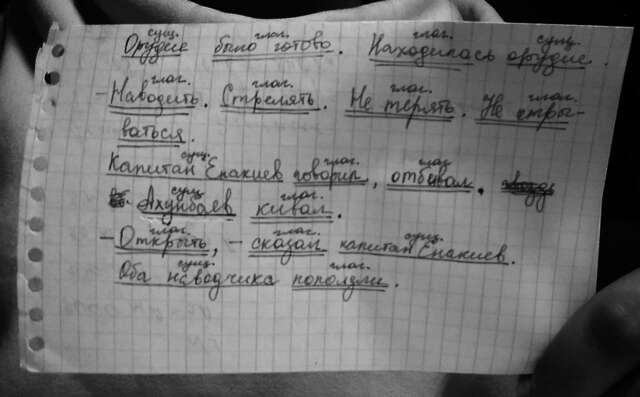 сущ. глаг. глаг. сущ.
Орудие было готово. Находилась орудие.
глаг. глаг. глаг. глаг.
- Наводить. Стрелять. Не терять. Не отры-
ваться.
сущ. глаг. глаг
Капитан Енакиев говорил, отбивал.
сущ. глаг.
Ахунбаев кивал.
глаг. глаг. сущ.
- Открыть, - сказал капитан Енакиев.
сущ. глаг.
Оба наводчика поползли.